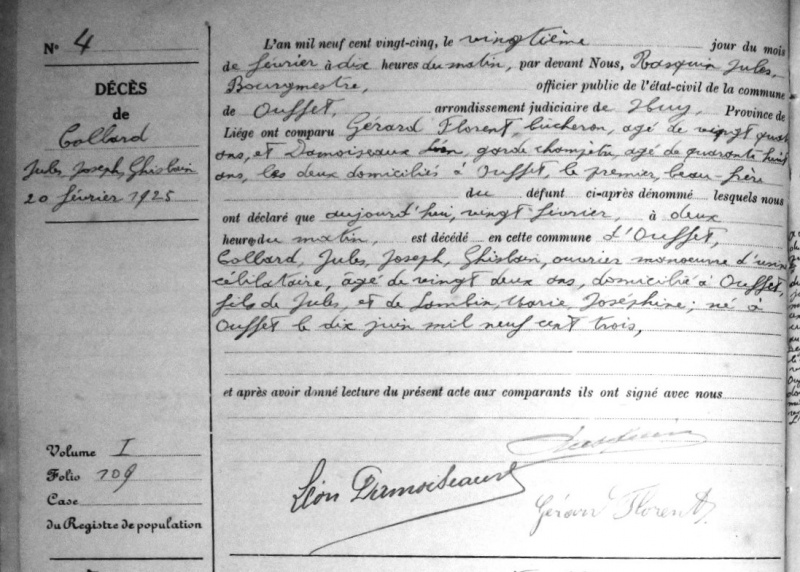 N° 4
DÉCÈS
de
Collard
Jules Joseph Ghislain
20 février 1925
L'an mil neuf cent vingt-cinq, le vingtième jour du mois
de février à dix heures du matin, par devant Nous, Rasquin Jules,
Bourgmestre, officier public de l'état-civil de la commune
de Ouffet, arrondissement judiciaire de Huy, Province de
Liége ont comparu Gérard Florent, bûcheron, agé de vingt quatre
ans, et Damoiseaux Léon, garde champêtre, agé de quarante huit
ans, les deux domiciliés à Ouffet, le premier, beau-frère
du défunt ci-après dénommé lesquels nous
ont déclaré que aujourd'hui, vingt février, à deux
heures du matin, est décédé en cette commune d'Ouffet,
Collard, Jules, Joseph, Ghislain, ouvrier manoeuvre d'usine
célibataire, âgé de vingt deux ans, domicilié à Ouffet,
fils de Jules, et de Lomblin, Marie Joséphine; né à
Ouffet le dix juin mil neuf cent trois,
et après avoir donné lecture du présent acte aux comparants ils ont signé avec nous
Volume I
Folio 109
Case
du Registre de population
Léon Damoiseaux
Gérard Florent